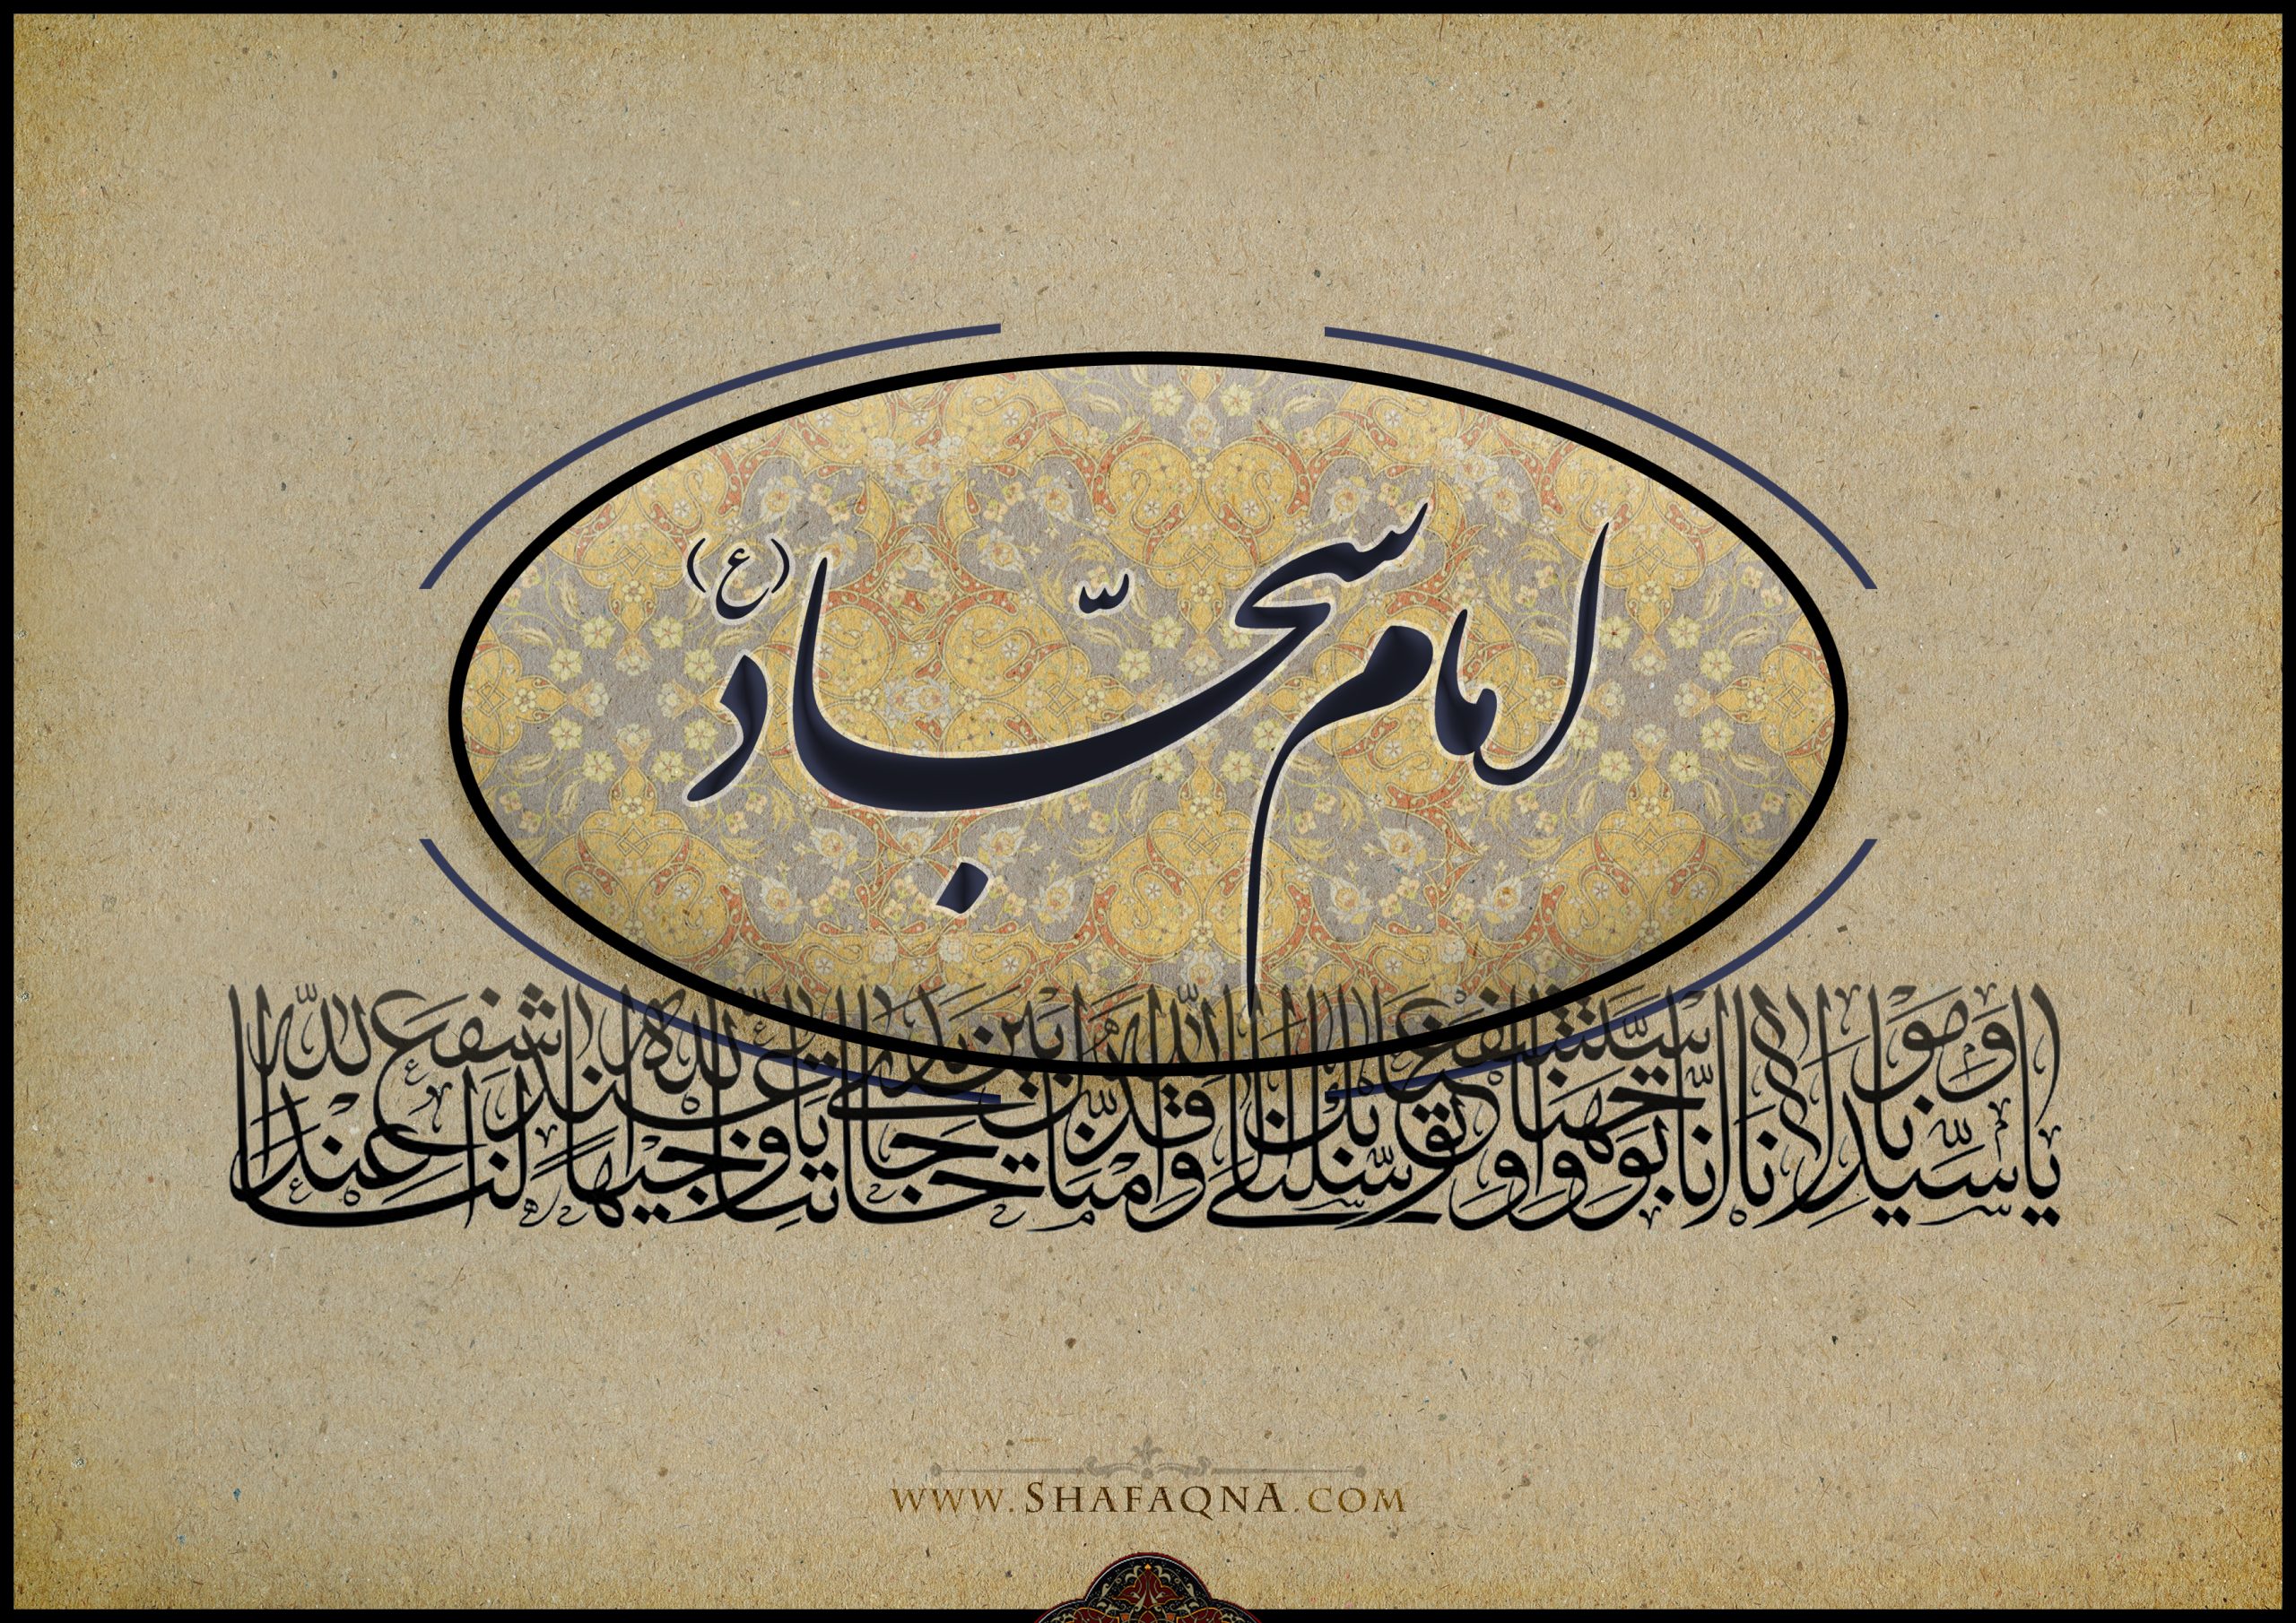 امام سجّاد (ع)
يا سيّدنا ومولانا انّا توجّهنا واستشفعنا وتوسّلنا بك الى اللّه وقدّمناك بين يدى حاجاتنا يا وجيهاً عند اللّه اشفع لنا عند اللّه
www.Shafaqna.com